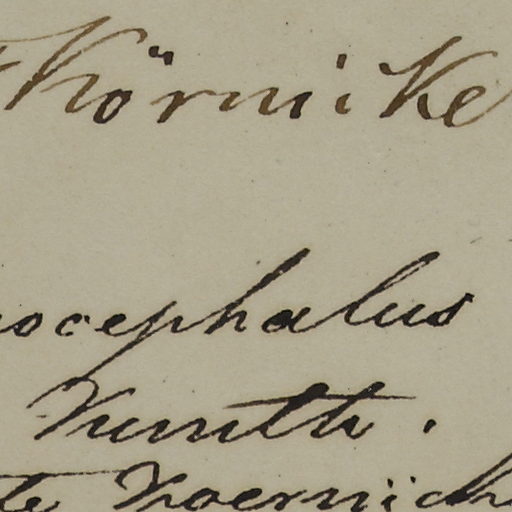 Körnicke
ocephalus
Kunth.
te Koernick